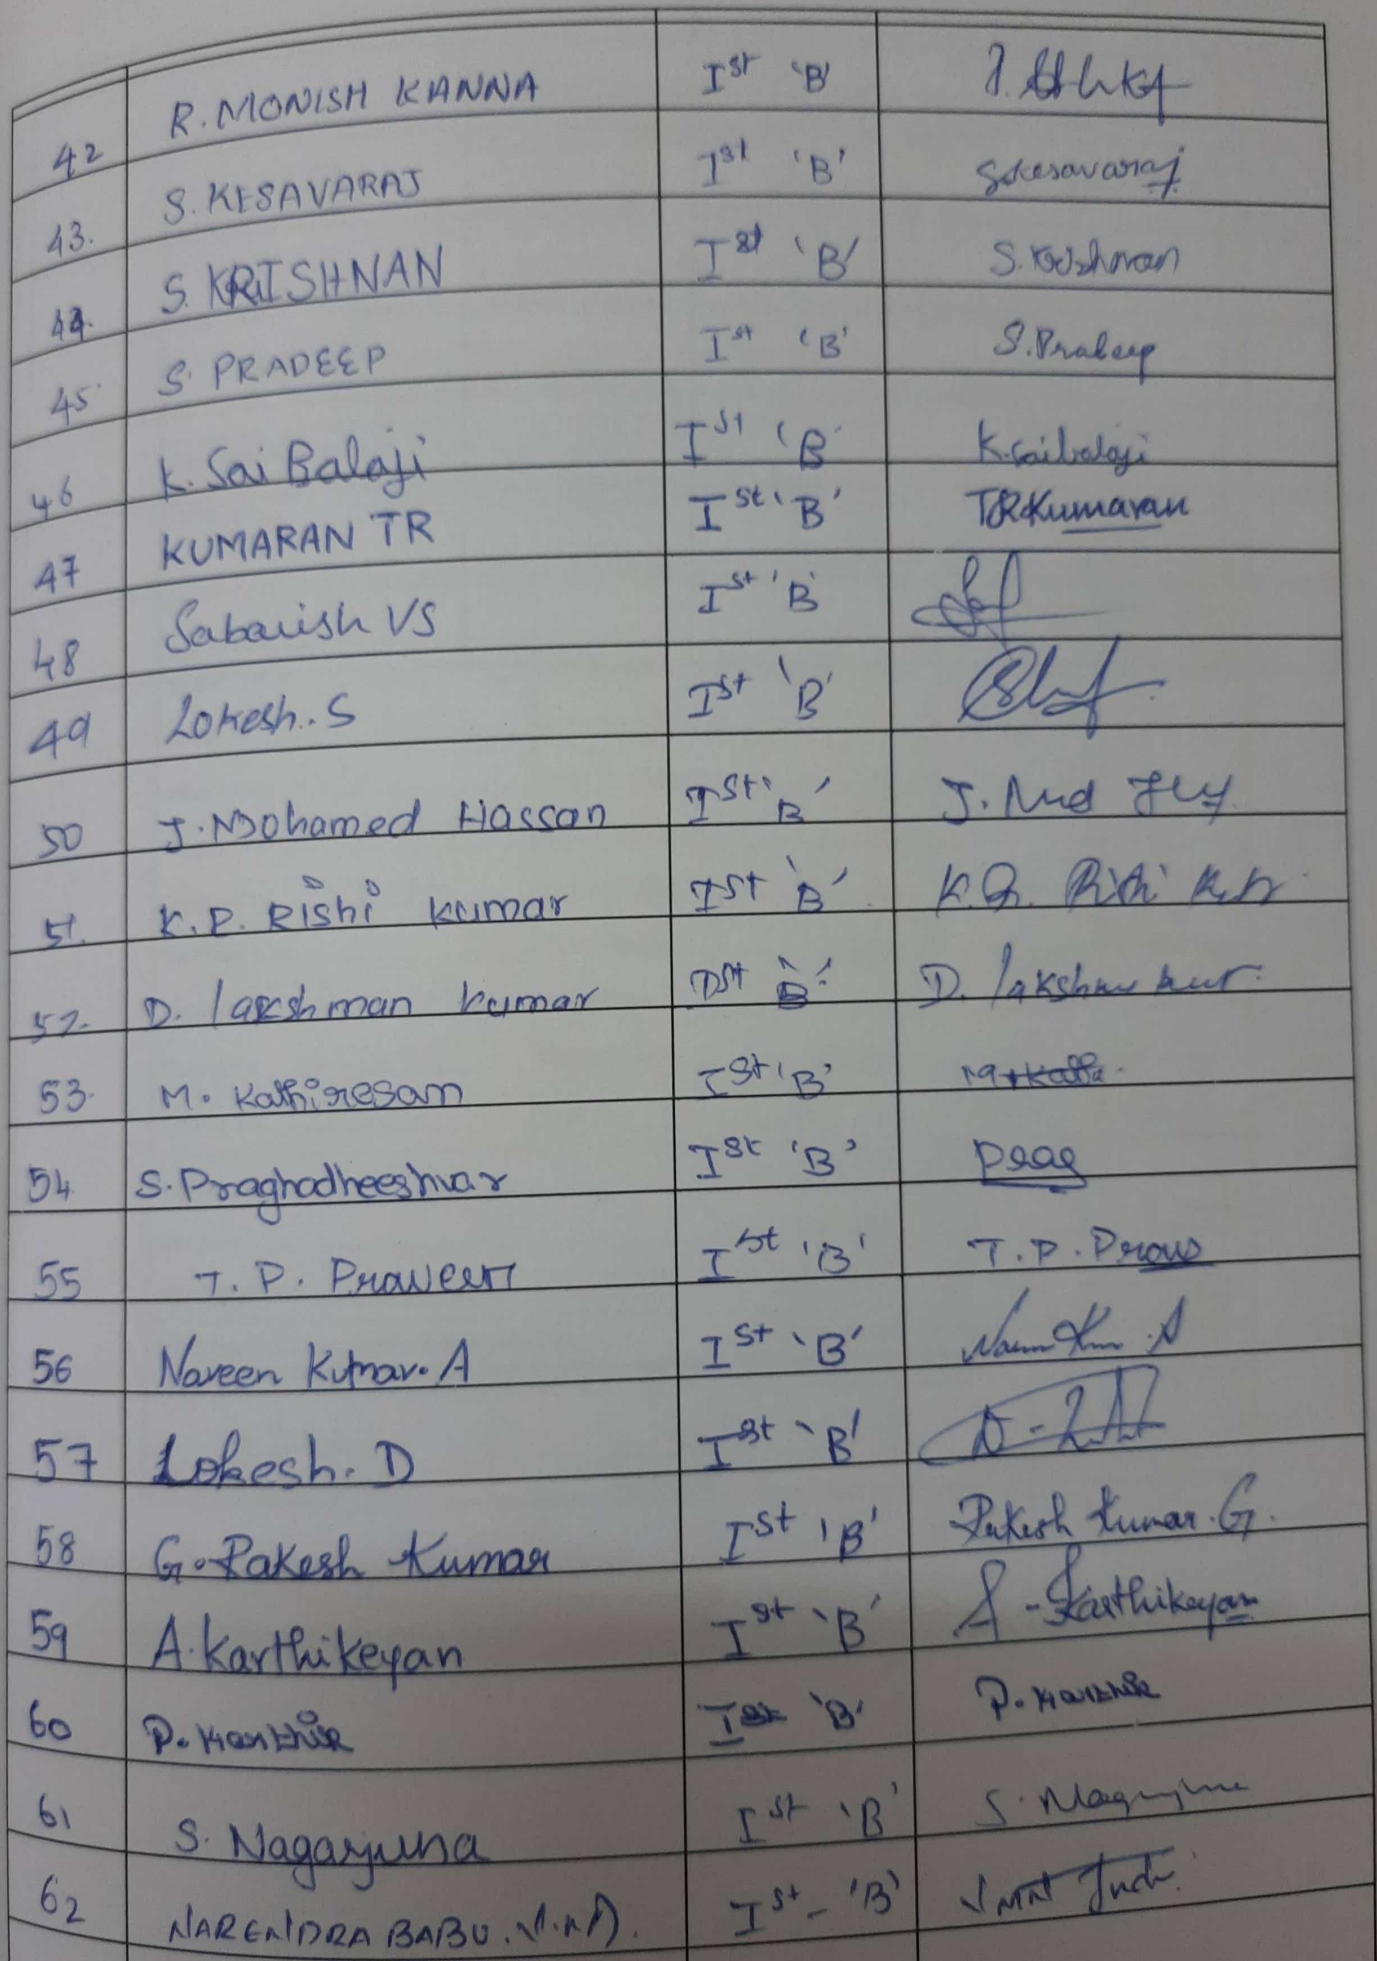 42 R. MONISH KANNA Ist 'B'
43. S. KESAVARAJ Ist 'B' S.Kesavaraj
44. S. KRISHNAN Ist 'B' S. Krishnan
45 S. PRADEEP Ist 'B' S. Pradeep
46 K. Sai Balaji Ist 'B' K. sai balaji
47 KUMARAN TR Ist 'B' TR Kumaran
48 Sabarish VS Ist 'B'
49 Lokesh. S Ist 'B'
50 J. Mohamed Hassan Ist 'B' J. Md
51. K.R. Rishi kumar Ist 'B' K.R. Rishi
52. D. lakshman kumar Ist 'B' D.
53. M. Kathiresan Ist 'B'
54 S. Praghadheeshvar Ist 'B'
55 T. P. Praveen Ist 'B' T. P.
56 Naveen Kumar. A Ist 'B' A
57 Lokesh. D Ist 'B'
58 G. Rakesh Kumar Ist 'B' Rakesh Kumar. G.
59 A. Karthikeyan Ist 'B' A - Karthikeyan
60 P. Karthik Ist 'B' P. Karthik
61 S. Nagarjuna Ist 'B' S.
62 NARENDRA BABU. Ist - 'B'